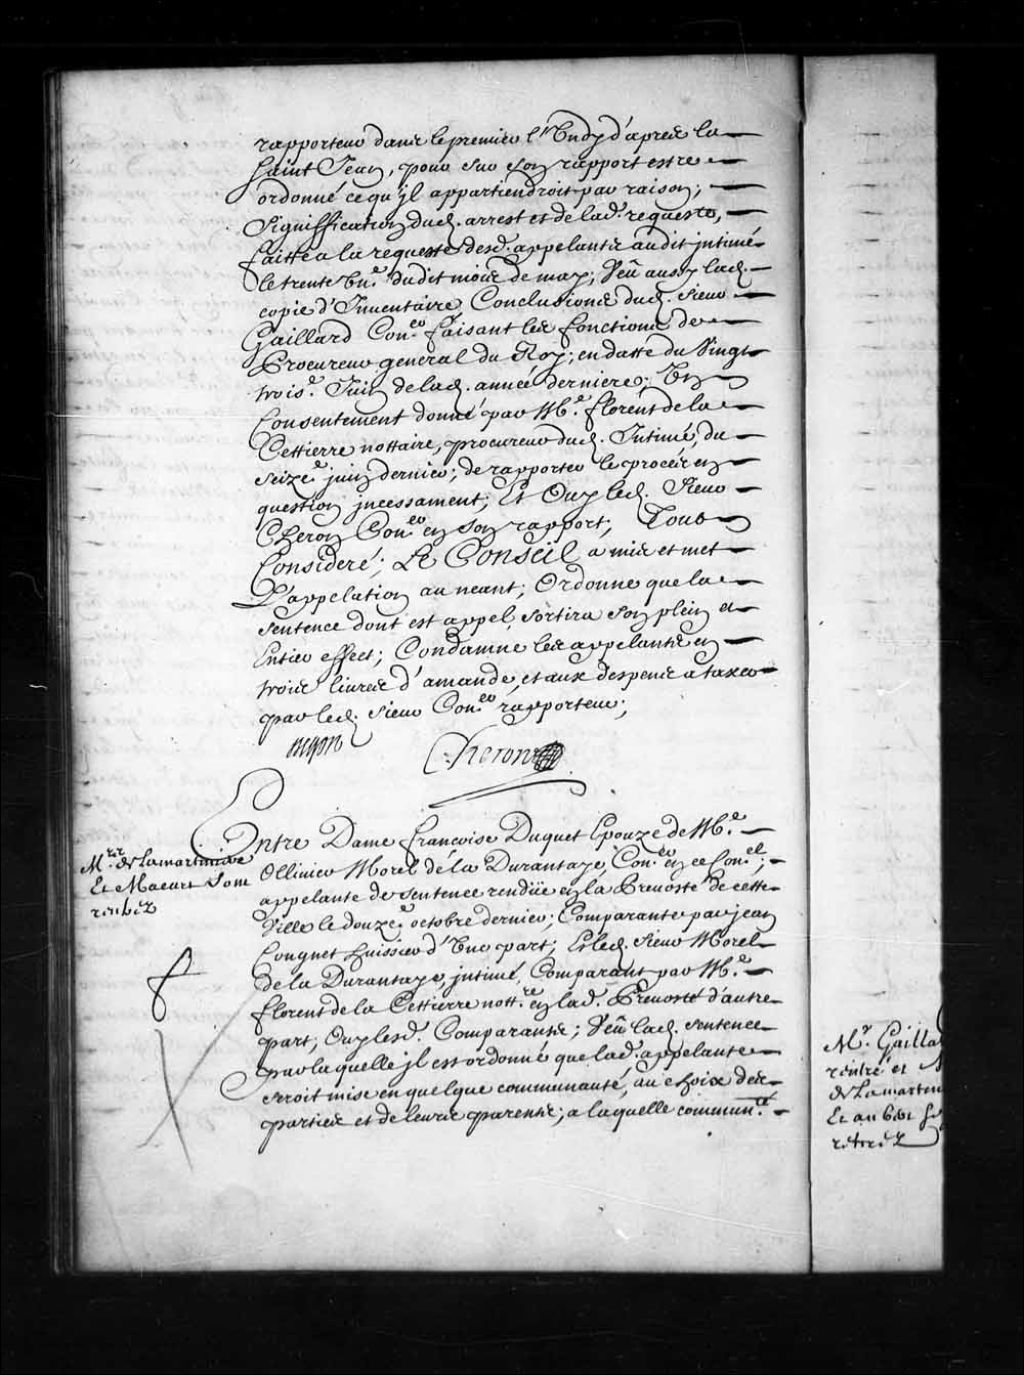 rapporteur dans le premier lundy d'apres la
Saint Jean, pour sur son rapport estre
ordonné ce qu'jl appartiendroit par raison;
Signiffication dud. arrest et de lad.e requeste,
faitte a la requeste desd. appelants audit jntimé
le trente un.e dudit mois de may; Veû aussy lad.
copie d'Inventaire, Conclusions dud. sieur
Gaillard Con.er faisant les fonctions de
Procureur general du Roy; en datte du Vingt
trois.e Juin de lad. année derniere; Un
Consentement donné par M.e florent de la
Cettierre nottaire, procureur dud. Intimé, du
seize.e juin dernier; de rapporter le procés en
question jncessament; Et Ouy led. Sieur
Cheron Con.er en son rapport; Tout
Consideré; Le Conseil a mis et met
L'appelation au neant; Ordonne que la
sentence dont est appel, sortira son plein et
Entier effect; Condamne les appelants en
trois livres d'amande, et aux despens a taxer
par led. sieur Con.er rapporteur;
Cheron
Entre Dame francoise Duquet Epouze de M.e
Ollivier Morel de la Durantaye, Con.er en ce Con.el;
appelante de sentence rendüe en la Prevosté de cette
Ville le douze.e octobre dernier; Comparante par jean
Congnet huissier d'Une part; Et led. sieur Morel
de la Durantaye, jntimé Comparant par M.e
florent de la Cettierre nott.re en lad. Prevosté d'autre
part; Ouy lesd. Comparants; Veû lad. sentence
par laquelle jl est ordonné que lad. appelante
seroit mise en quelque communauté, au choix des
parties et de leurs parents; a laquelle commun.té
M.rs de Lamartiniere
Et Macart Sont
M.r Gailla
rentré et
de Lamartin
Et
retiré